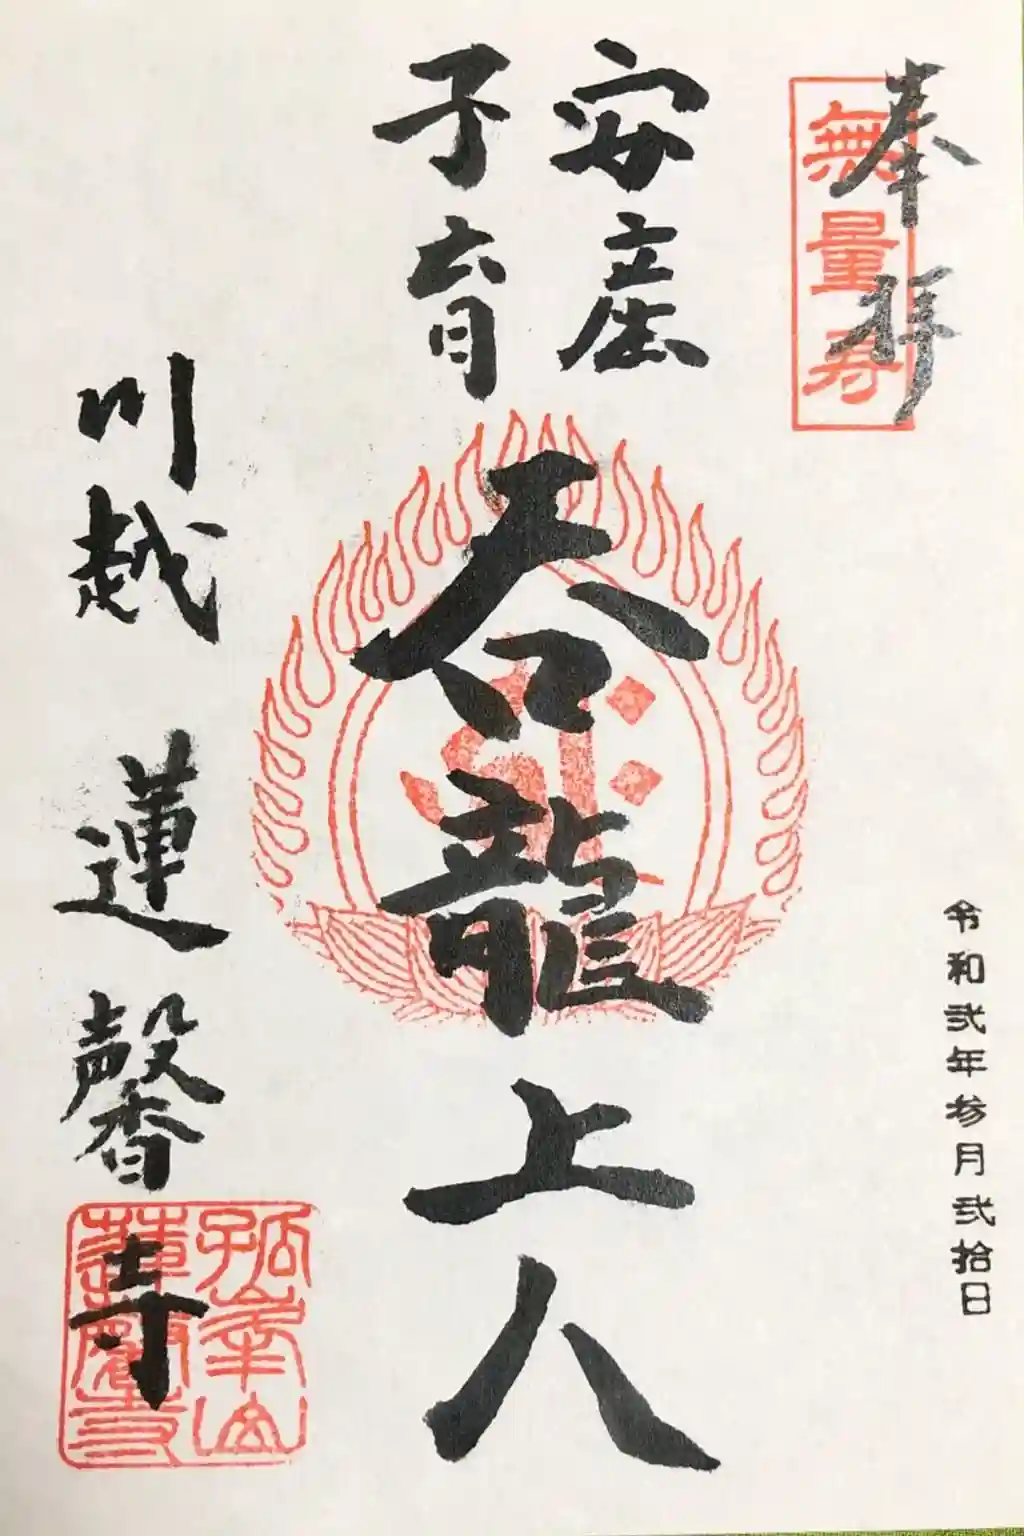 奉拝
無量寿
令和弐年参月弐拾日
安産
子育
呑龍上人
川越 蓮馨寺
孤峯山
蓮馨寺